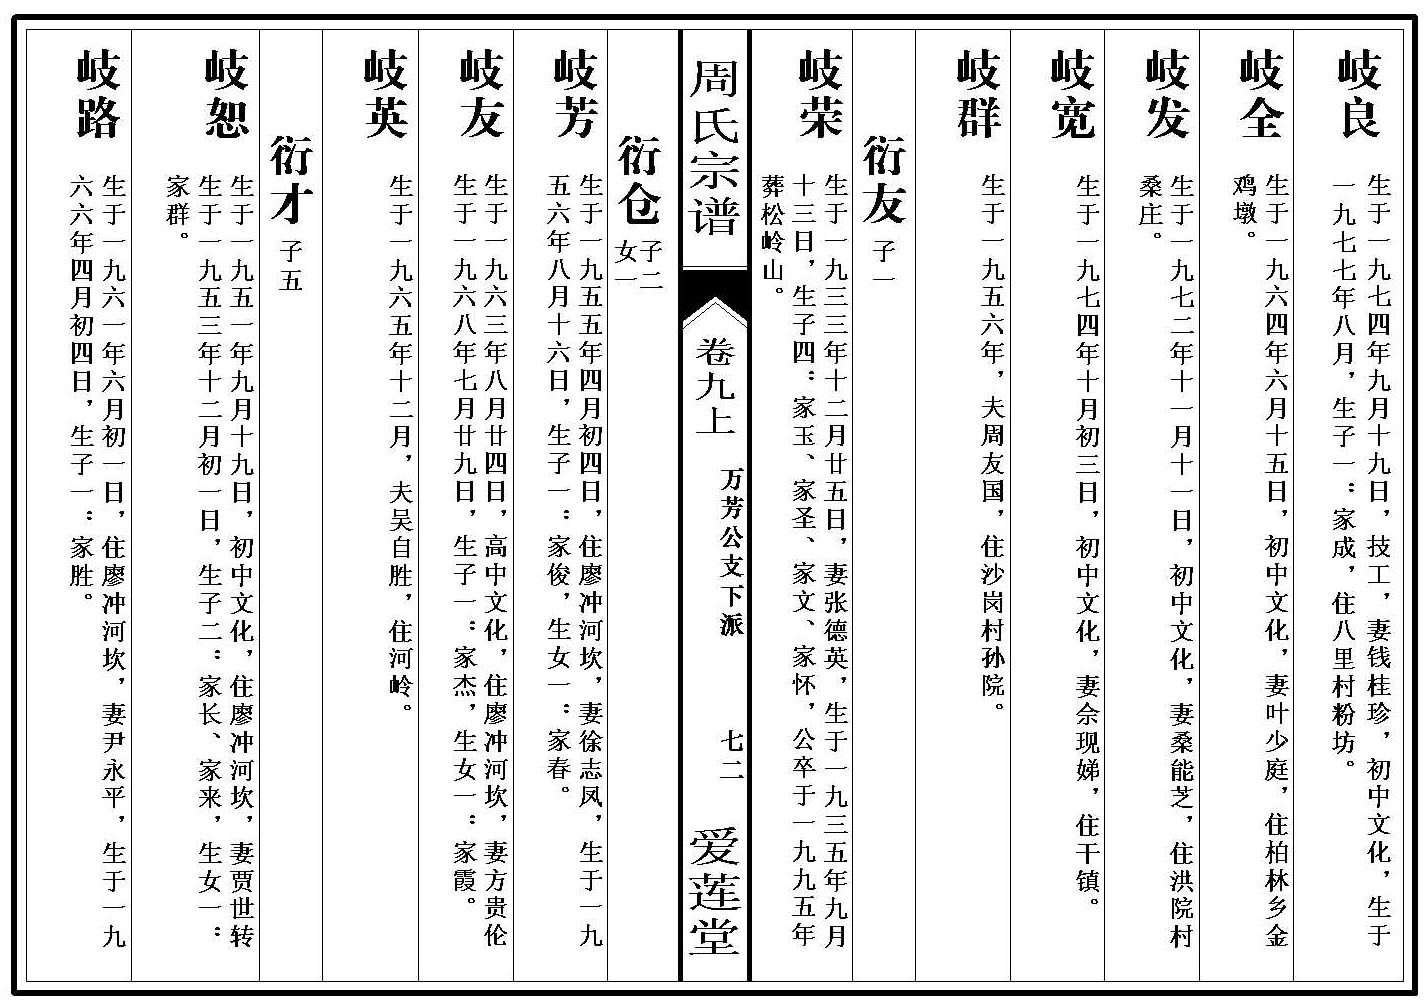 岐良
生于一九七四年九月十九日，技工，妻钱桂珍，初中文化，生于
一九七七年八月，生子一：家成，住八里村粉坊。
岐全
生于一九六四年六月十五日，初中文化，妻叶少庭，住柏林乡金
鸡墩。
岐发
生于一九七二年十一月十一日，初中文化，妻桑能芝，住洪院村
桑庄。
岐宽
生于一九七四年十月初三日，初中文化，妻余现娣，住干镇。
岐群
生于一九五六年，夫周友国，住沙岗村孙院。
衍友
子一
岐荣
生于一九三三年十二月廿五日，妻张德英，生于一九三五年九月
十三日，生子四：家玉、家圣、家文、家怀，公卒于一九九五年
葬松岭山。
周氏宗谱
卷九上
万芳公支下派
七二
爱莲堂
衍仓
子二
女一
岐芳
生于一九五五年四月初四日，住廖冲河坎，妻徐志凤，生于一九
五六年八月十六日，生子一：家俊，生女一：家春。
岐友
生于一九六三年八月廿四日，高中文化，住廖冲河坎，妻方贵伦
生于一九六八年七月廿九日，生子一：家杰，生女一：家霞。
岐英
生于一九六五年十二月，夫吴自胜，住河岭。
衍才
子五
岐恕
生于一九五一年九月十九日，初中文化，住廖冲河坎，妻贾世转
生于一九五三年十二月初一日，生子二：家长、家来，生女一：
家群。
岐路
生于一九六一年六月初一日，住廖冲河坎，妻尹永平，生于一九
六六年四月初四日，生子一：家胜。